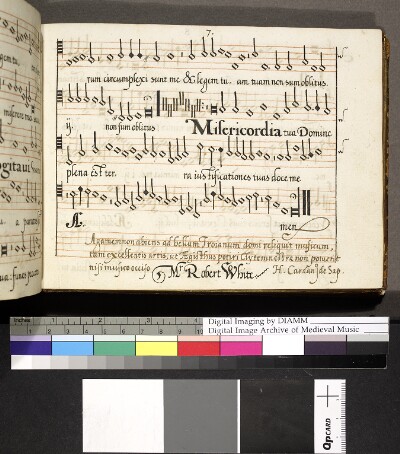 7.
rum circumplexi sunt me & legem tu. am tuam non sum oblitus.
ij. non sum oblitus Misericordia tua Domine
plena est ter. ra ius tificationes tuas doce me
A. men
Agamemnon abiens ad bellum Troianum domi reliquit musicum,
tam excellentis artis, ut Ægisthus potiri Clytemnestra non potuerit
nisi musico occiso Mr Robert White H. Cardan9 de Sap.
inches 1 2 3 4 5 6
Digital Imaging by DIAMM
Digital Image Archive of Medieval Music
Qp CARD